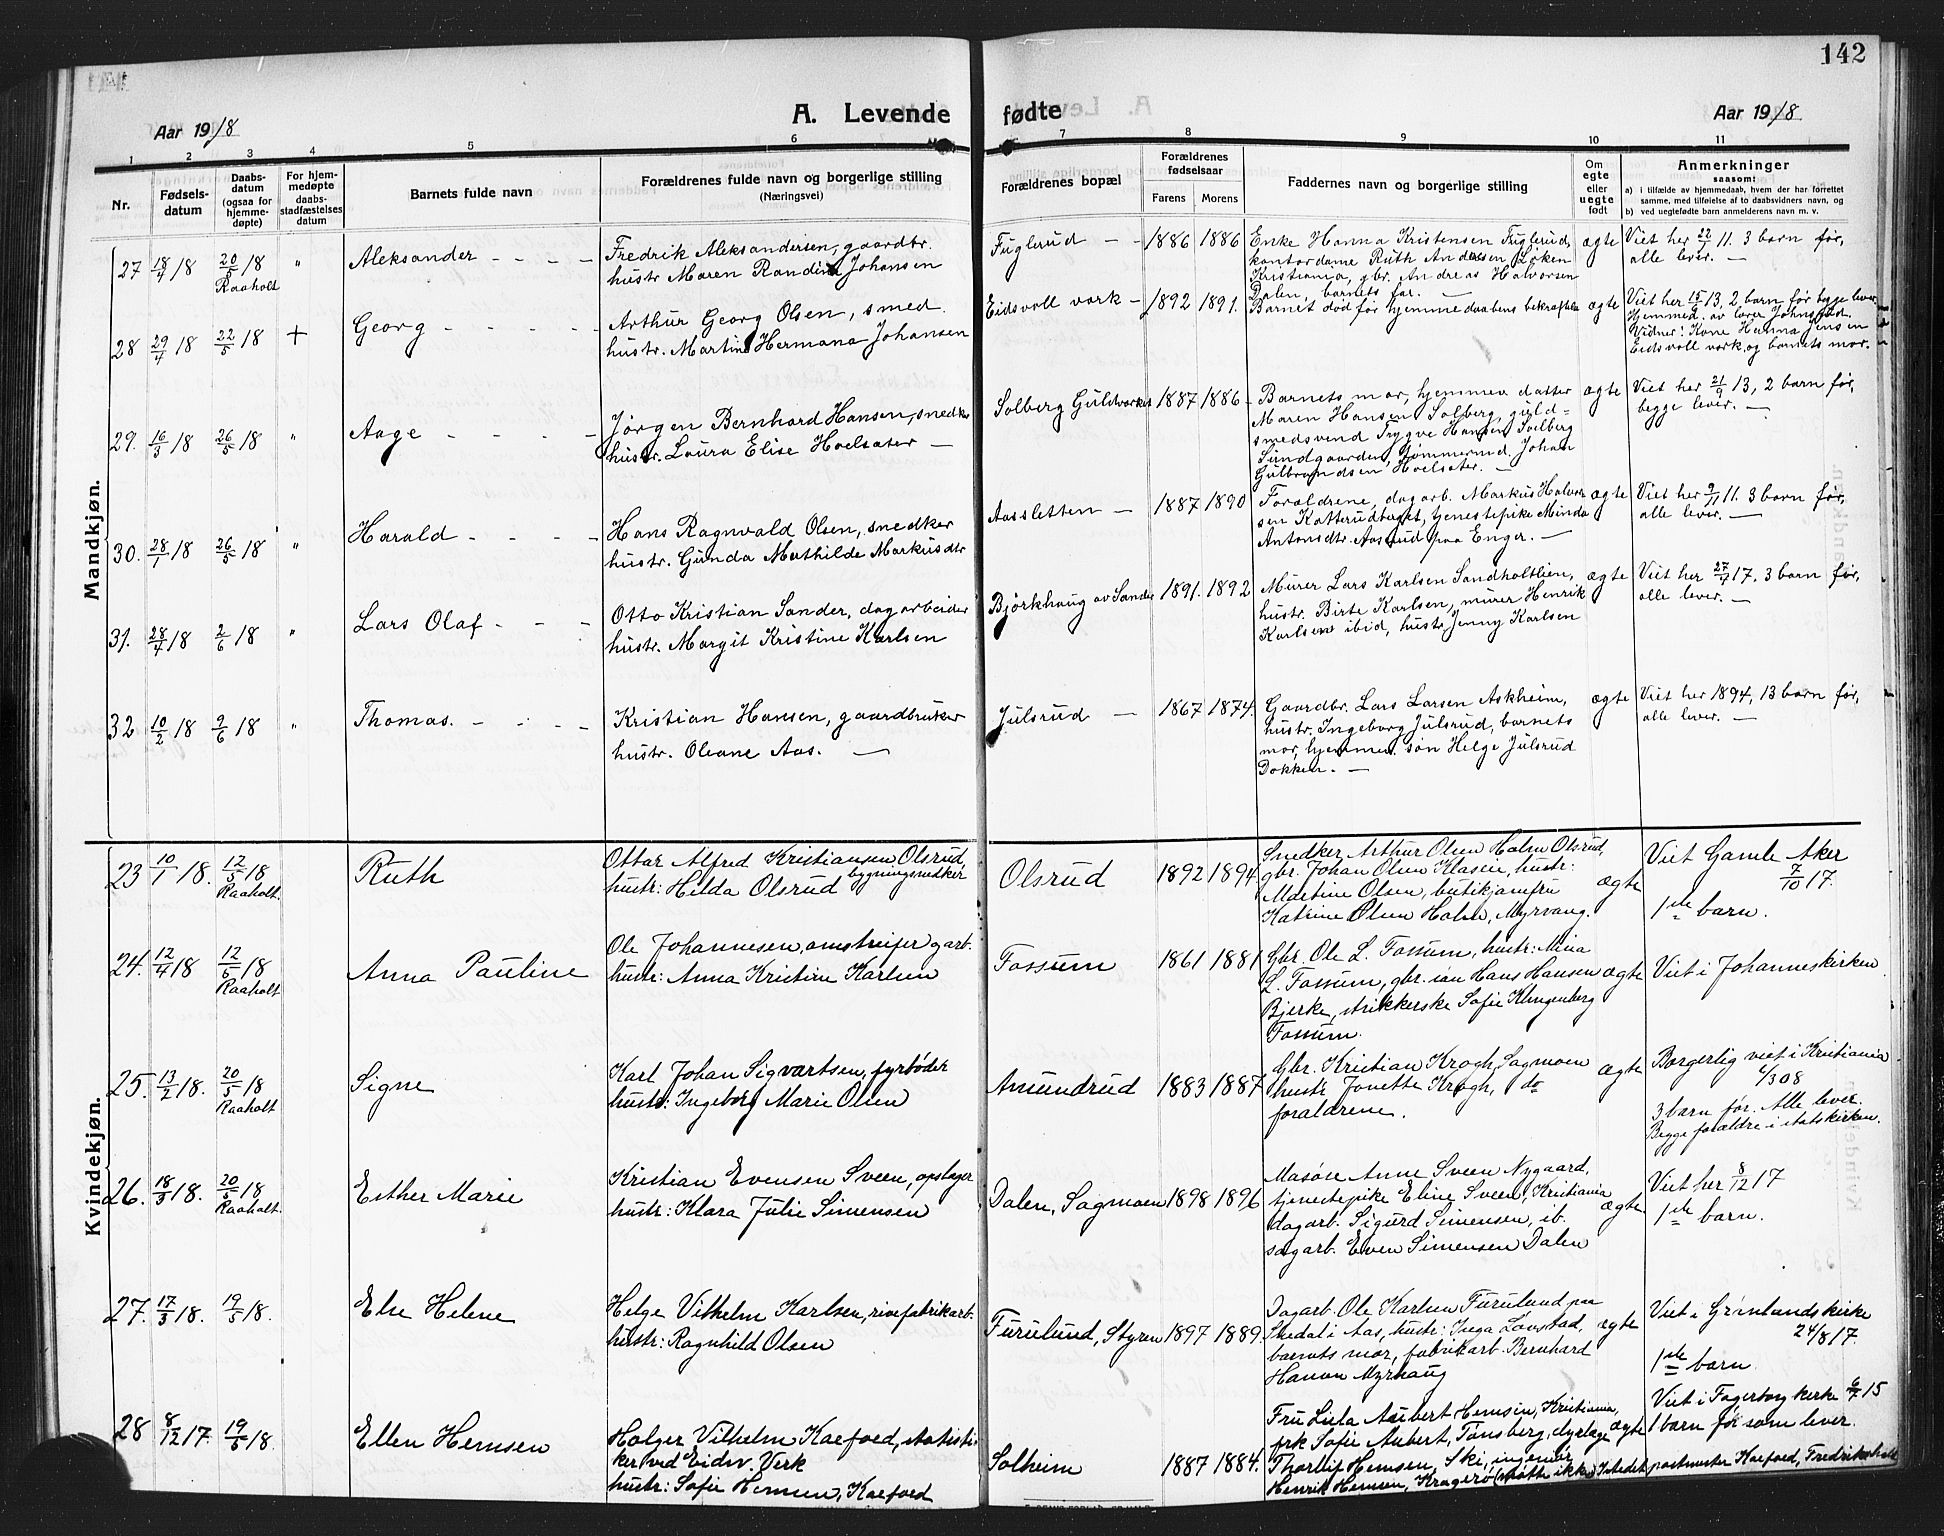 142
A. Levende fødte
Aar 1918
Aar 1918
1 2 3 4 5 6 7 8 9 10 11
Nr.
Fødsels-
datum
Daabs-
datum
(ogsaa for
hjemme-
døpte)
For hjem-
medøpte
daabs-
stadfæstelses
datum
Barnets fulde navn
Forældrenes fulde navn og borgerlige stilling
(Næringsvei)
Forældrenes bopæl
Forældrenes
fødselsaar
Farens Morens
Faddernes navn og borgerlige stilling
Om
egte
eller
uegte
født
Anmerkninger
saasom:
a) i tilfælde av hjemmedaab, hvem der har forrettet
samme, med tilføielse af to daabsvidners navn, og
b) ved uegtefødte barn anmelderens navn m. v.
Mandkjøn.
27 18/4 18 20/5 18 " Aleksander
Raaholt
Fredrik Aleksandersen, gaardbr.
hustr. Maren Randine Johansen
Fuglerud 1886 1886
Enke Hanna Kristensen Fuglerud,
kontordame Ruth Andersen Løken
Kristiania, gbr. Andreas Halvorsen
Dalen, barnets far.
ægte
Viet her 22/7 11. 3 barn før,
alle lever.
28 29/4 18 22/5 18 + Georg
Arthur Georg Olsen, smed.
hustr. Martine Hermana Johansen
Eidsvoll verk 1892 1891.
Barnet død før hjemmedaabens bekræftelse
ægte
Viet her 15/2 13, 2 barn før begge lever.
Hjemmed. av lærer Johnsgård.
Vidner: Kone Hanna Jensen
Eidsvoll verk og barnets mor.
29. 16/3 18 26/5 18 " Aage
Jørgen Bernhard Hansen, snedker
hustr. Laura Elise Hoelsæter
Solberg Guldverket 1887 1886
Barnets mor, hjemmev. datter
Maren Hansen Solberg, guld-
smedsvend Trygve Hansen Solberg
Sundgaarden, tømmermd. Johan
Gulbrandsen Hoelsæter.
ægte
Viet her 21/9 13, 2 barn før,
begge lever.
30. 28/1 18 26/5 18 " Harald
Hans Ragnvald Olsen, snedker
hustr. Gunda Mathilde Markusdtr
Aassletten 1887 1890
Forældrene, dagarb. Markus Halvor
sen Katterudberget, tjenestepike Minda
Antonsdtr. Aasrud paa Enger.
ægte
Viet her 9/11 11. 3 barn før,
alle lever.
31. 28/4 18 2/6 18 " Lars Olaf
Otto Kristian Sander, dagarbeider
hustr. Margit Kristine Karlsen
Bjørkhaug av Sander 1891. 1892
Murer Lars Karlsen Sandholtlien,
hustr. Birte Karlsen, murer Henrik
Karlsen ibid, hustr. Jenny Karlsen
ægte
Viet her 27/7 17. 3 barn før,
alle lever.
32 10/2 18 2/6 18 " Thomas.
Kristian Hansen, gaardbruker
hustr. Oleane Aas.
Julsrud 1867 1874.
Gaardbr. Lars Larsen Askheim,
hustr. Ingeborg Julsrud, barnets
mor, hjemmev. søn Helge Julsrud
Dokken.
ægte
Viet her 1894, 13 barn før,
alle lever.
Kvindekjøn.
23 10/1 18. 12/5 18 Ruth
Raaholt
Ottar Alfred Kristiansen Olsrud,
bygningsnedker
hustr: Hilda Olsrud
Olsrud 1892 1894
Snedker Arthur Olsen Holm Olsrud,
gbr. Johan Olsen Klasen, hustr:
Martine Olsen, butikjomfru
Katrine Olsen Holm, Myrvang.
ægte
Viet Gamle Aker
7/10 17.
1ste barn.
24. 12/4 18 12/5 18 Anna Pauline
Raaholt
Ole Johannesen, omstreifer garb.
hustr: Anna Kristine Karlsen
Fossum 1861 1881
Gbr. Ole L. Fossum, hustr: Mina
L. Fossum, gbr. søn Hans Hansen
Bjerke, strikkerske Sofie Klingenberg
Fossum.
ægte
Viet i Johanneskirken
25. 13/2 18. 20/5 18 Signe
Raaholt
Karl Johan Sigvartsen, fyrbøder
hustr: Ingeborg Marie Olsen
Amundrud 1883 1887
Gbr. Kristian Krogh, Sagmoen
hustr Jonette Krogh, do
forældrene.
ægte
Borgerlig viet i Kristiania
4/3 08
3 barn før. Alle lever.
Begge forældre i statskirken.
26. 18/3 18. 20/5 18 Esther Marie
Raaholt.
Kristian Evensen Sveen, opslager
hustr: Klara Julie Simensen
Dalen, Sagmoen 1898 1896
Masøse Anne Sveen Nygaard,
tjenestepike Eline Sveen, Kristiania
dagarb. Sigurd Simensen, ib.
sagarb. Even Simensen Dalen
ægte
Viet her 8/12 17
1ste barn.
27. 17/3 18. 19/5 18. Else Helene
Helge Vilhelm Karlsen, rivefabrikarb.
hustr: Ragnhild Olsen
Furulund, Styren 1897 1889.
Dagarb. Ole Karlsen Furulund paa
Skedal i Aas, hustr: Inga Lovstad,
barnets mor, fabrikarb. Bernhard
Hansen Myrhaug
ægte
Viet i Grønlandskirke
24/8 17
1ste barn.
28 8/12 17. 19/5 18. Ellen Hemsen
Holger Vilhelm Kaefoed, statisti-
ker ved Eidsv. Verk
hustr: Sofie Hemsen, Kaefoed
Solheim 1887 1884.
Fru Lula Aubert Hemsen, Kristiania,
frk Sofie Aubert, Tønsberg, dyrlæge
Thorleif Hemsen, Ski, ingeniør
Henrik Hemsen, Kragerø (møtte ikke) Istedet postmester Kaefoed, Fredrikshald
ægte
Viet i Fagerborg kirke 6/7 15
1 barn før som lever.